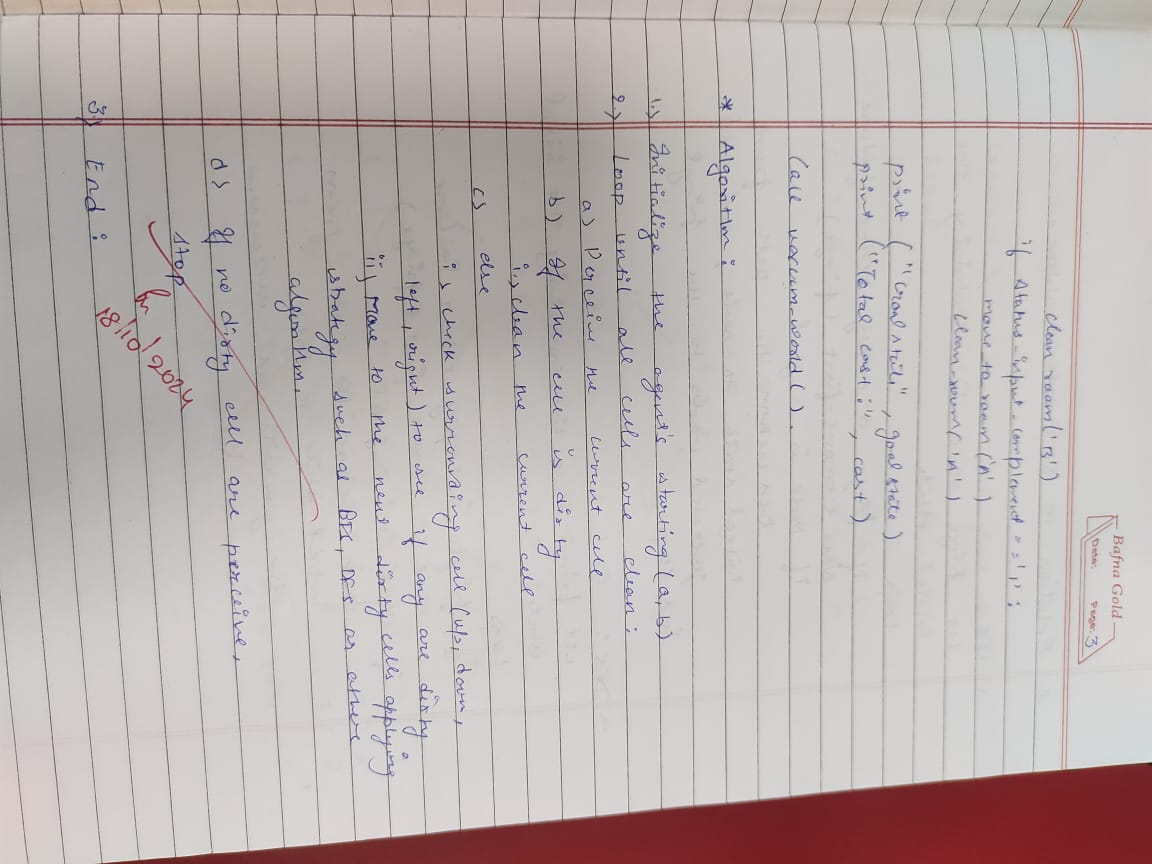 Bafna Gold
Date: Page: 3
clean room('B')
if status-input-complement == '1':
move to room('A')
clean-room('A')
print ("Goal state", goal state)
print ("Total cost:", cost)
Call vacuum-world().
* Algorithm:
1.) Initialize the agent's starting (a,b)
2.) Loop until all cells are clean;
a) Perceive the current cell
b) If the cell is dirty
i, clean the current cell
c) else
i, check surrounding cell (up, down,
left, right) to see if any are dirty
ii, move to the next dirty cells applying
strategy such as BFS, DFS or others
algorithm.
d) If no dirty cell are perceive,
stop
18/10/2024
3.) End: